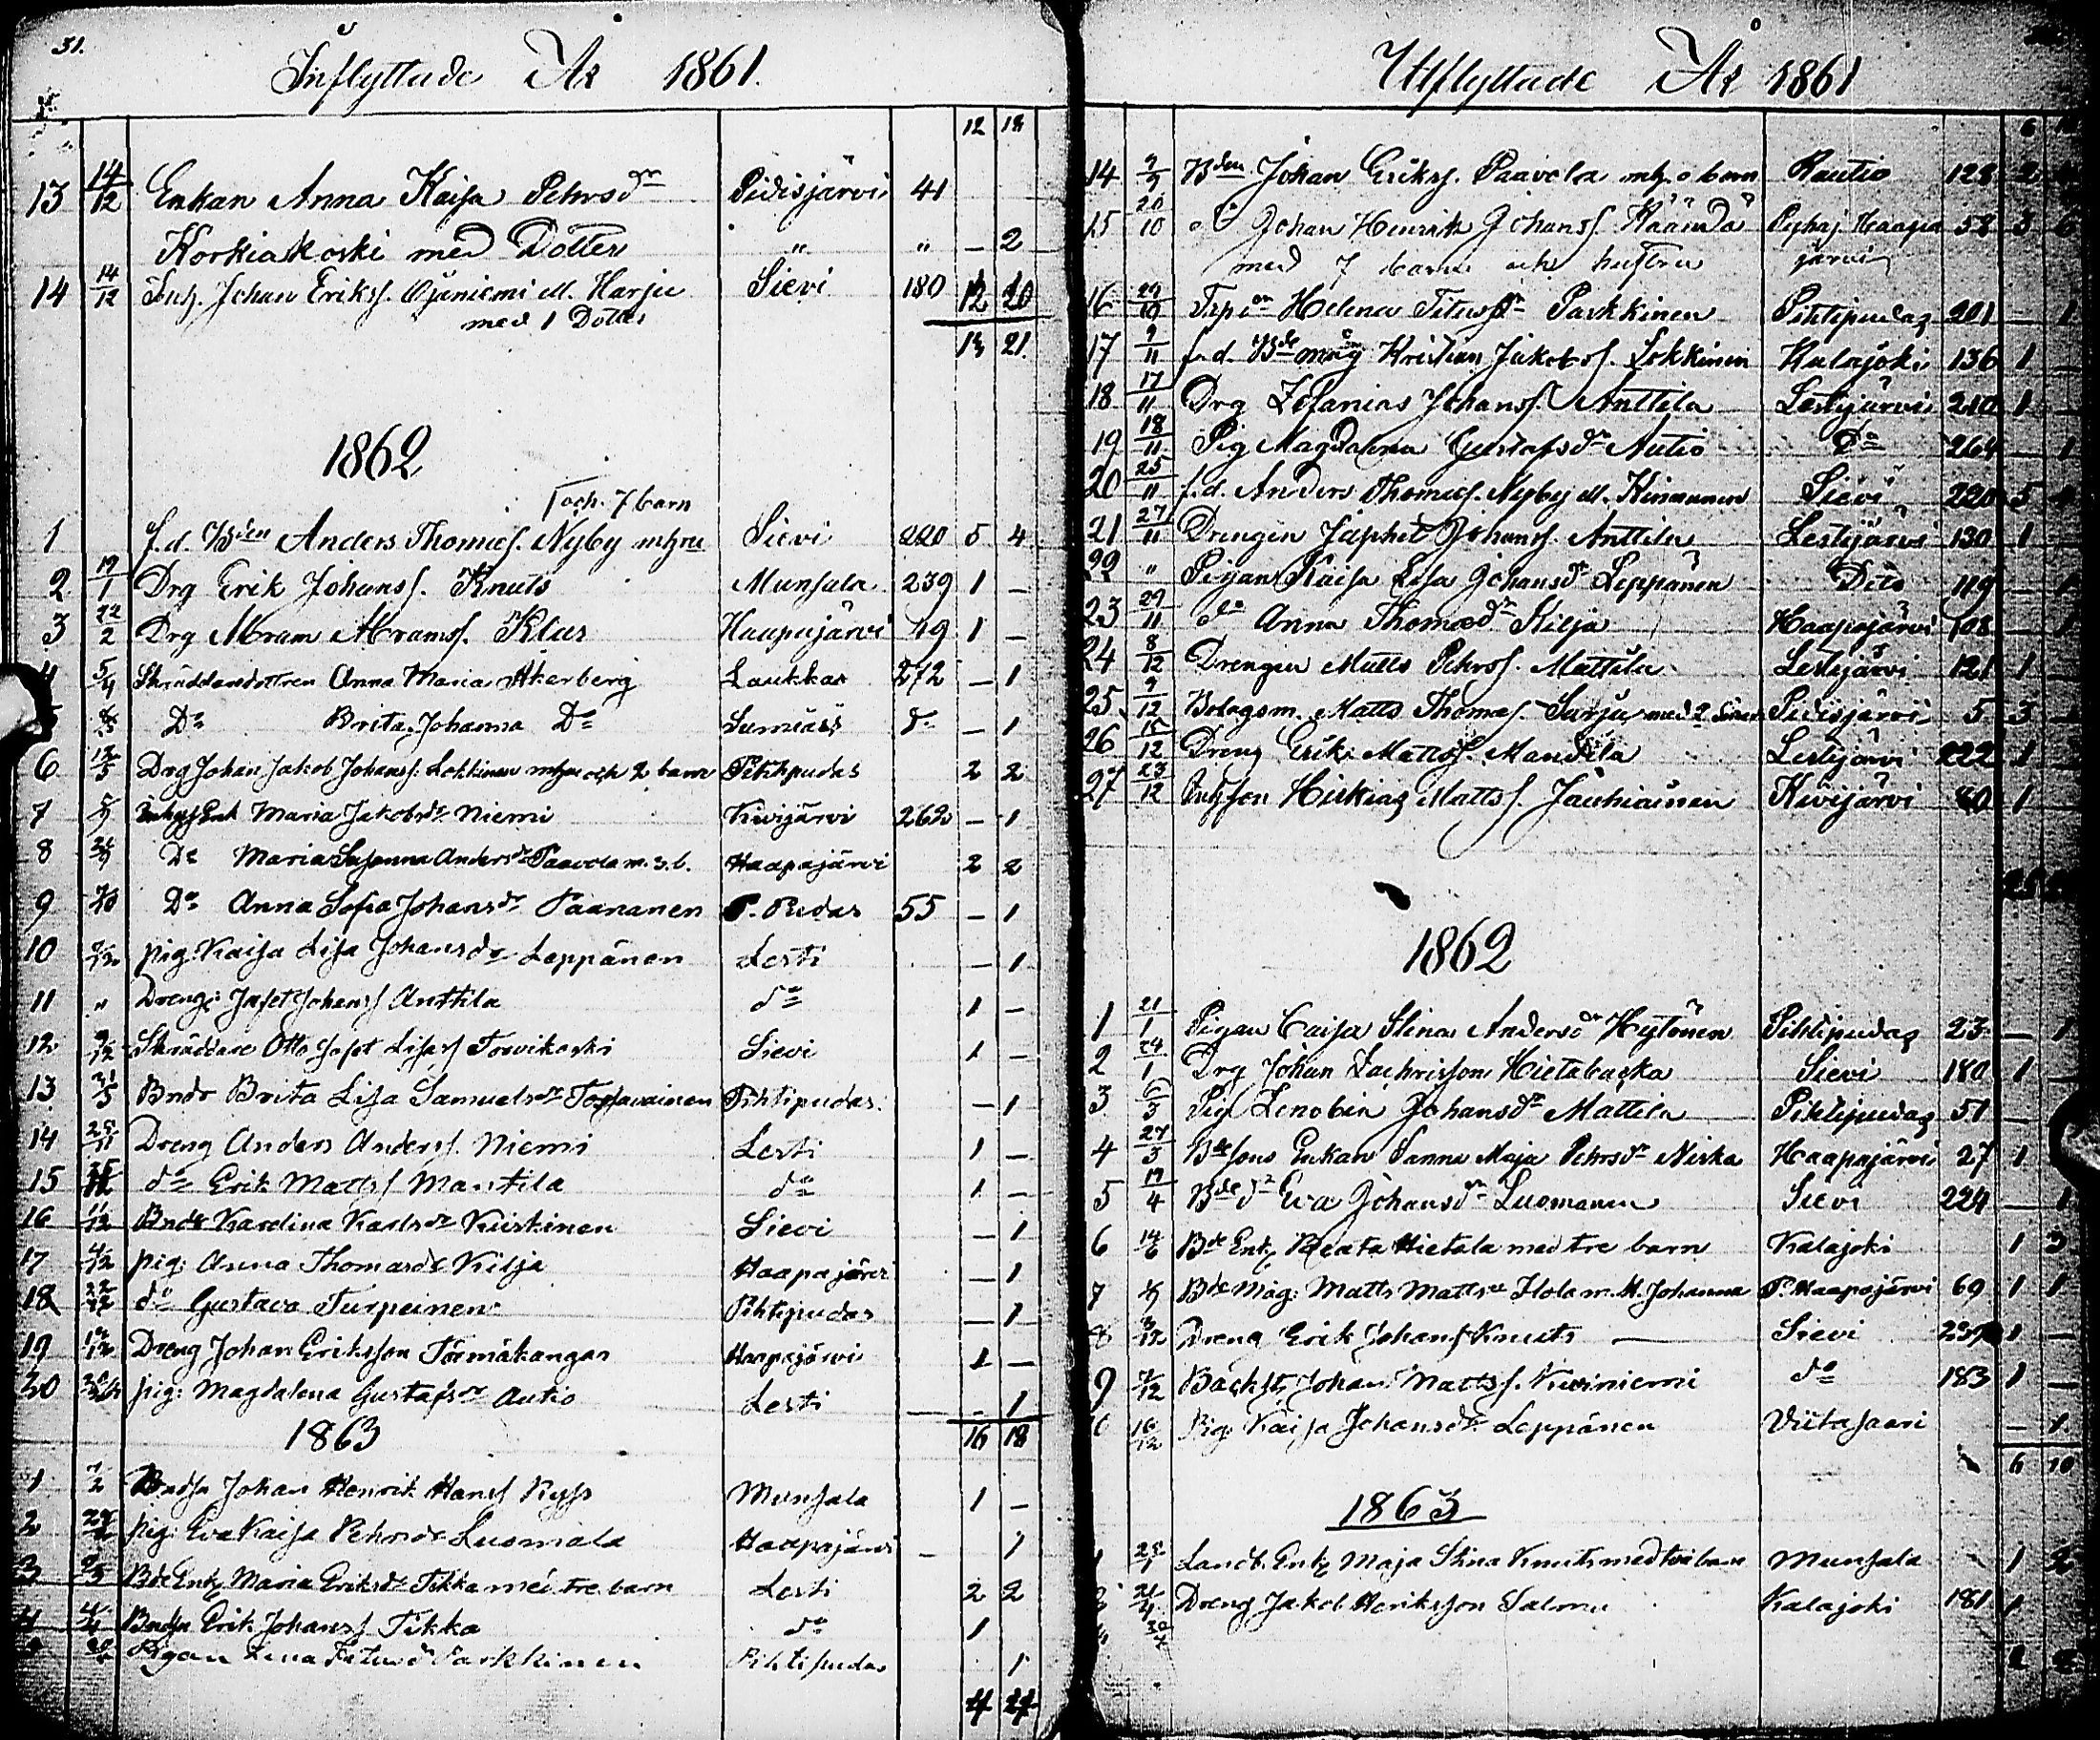 31.
Inflyttade År 1861.
12 18
13 14/12 Enkan Anna Kaisa Pehrsdr Pidisjärvi 41
Korkiakoski med Dotter " " – 2
14 14/12 Inh. Johan Erikss. Ojaniemi ell. Harju Sievi 180 12 20
med 1 Dotter
13 21
1862
och 7 barn
1 f.d. Bden Anders Thomass. Nyby m hru Sievi 220 5 4
2 19/1 Drg Erik Johanss. Knuts Munsala 239 1 –
3 22/2 Drg Abram Abramss. Klas Haapajärvi 49 1 –
4 5/4 Skräddaredottren Anna Maria Åkerberg Laukkas 272 – 1
5 Do Brita Johanna Do Sumiais do – 1
6 Drg Johan Jakob Johanss. Lokkinen m hru och 2 barn Pihtipudas 2 2
7 Enk Maria Jakobsdr Niemi Kivijärvi 262 – 1
8 Do Maria Susanna Andersdr Paavola m. 3. b. Haapajärvi 2 2
9 Do Anna Sofia Johansdr Paananen P. Pudas 55 – 1
10 pig: Kaisa Lisa Johansdr Leppänen Lesti – 1
11 " Dreng: Jafet Johanss Anttila do 1 –
12 Skräddare Otto Jafet Torvikoski Sievi 1 –
13 Bndr Brita Lisa Samuelsdr Pihtipudas. – 1
14 Dreng Anders Anderss. Niemi Lesti 1 –
15 do Erik Mattss Mantila do 1 –
16 11/12 Bndr Karolina Karlsdr Kiiskinen Sievi – 1
17 pig: Anna Thomasdr Kilja Haapajärvi – 1
18 22/12 do Gustava Turpeinen Pihtipudas – 1
19 Dreng Johan Eriksson Törmäkangas Haapajärvi 1 –
20 pig: Magdalena Gustafsdr Autio Lesti – 1
1863 16 18
1 Bndsn Johan Henrik Hanss Ryss Munsala 1 –
2 pig: Eva Kaisa Pehrsdr Luomala Haapajärvi – 1
3 Bde Enk. Maria Eriksdr Tikka med tre barn Lesti 2 2
4 Bndsn Erik Johanss Tikka do 1
Pigan Lena Parkkinen Pihtipudas 1
4
Utflyttade År 1861
6
14 Bden Johan Erikss. Paavola m h. o barn Rautio 128 2
15 20/10 do Johan Henrik Johanss. Määttä Pyhäj. Haapa 58 3 6
med 7 barn och hustru järvi
16 Helena Titusdr Parkkinen Pihtipudas 201 – 1
17 9/11 f.d. Bde måg Kristian Jakobss. Lokkinen Kalajoki 136 1
18 17/11 Drg Zefanias Johanss. Anttila Lestijärvi 210 1
19 18/11 Pig Magdalena Gustafsdr Autio Do 264 1
20 25/11 f.d. Anders Thomass. Nyby ell. Kinnunen Sievi 220 5 4
21 27/11 Drengen Japhet Johanss. Anttila Lestijärvi 130 1
22 " Pigan Kaisa Lisa Johansdr Leppänen Dito 119 1
23 29/11 do Anna Thomasdr Kilja Haapajärvi 108 1
24 8/12 Drengen Matts Pehrss. Mattila Lestijärvi 121 1
25 9/12 Bolagsm. Matts Thomass. Sarja med 2 söner Pidisjärvi 5 3
26 15/12 Dreng Erik Mattss. Mantila Lestijärvi 222 1
27 23/12 Inhyson Hiskias Mattss. Jauhiainen Kivijärvi 80 1
1862
1 21/1 Pigan Caisa Stina Andersdr Hytönen Pihtipudas 23 – 1
2 24/1 Drg Johan Zachrisson Hietabacka Sievi 180 1
3 6/3 Pig Zenobia Johansdr Mattila Pihtipudas 51 –
4 27/3 Bdesons Enkan Sanna Maja Pehrsdr Niska Haapajärvi 27 1
5 19/4 Bde dr Eva Johansdr Luomanen Sievi 224 – 1
6 14/6 Bde Enk. Beata Hietala med tre barn Kalajoki 1 3
7 Bde Måg: Matts Mattss Hola m. H. Johanna P. Haapajärvi 69 1 1
8 Dreng Erik Johanss Knuts – Sievi 239 1 –
9 7/12 Backst. Johan Mattss. Kusiniemi do 183 1 –
10 16/12 Pig: Kaisa Johansdr Leppänen Viitasaari – 1
6 10
1863
Landb. Enk. Maja Stina Knuts med två barn Munsala 1 2
Dreng Jakob Henriksson Salmu Kalajoki 181 1
2 2